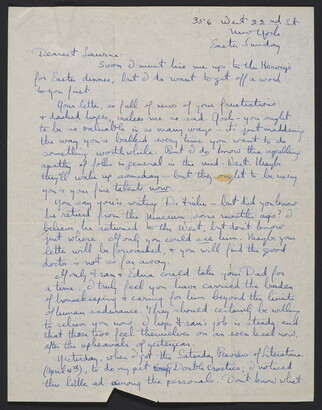 356 West 22nd St
New York
Easter Sunday
Dearest Laurine:
Soon I must hie me up to the Herweys
for Easter dinner, but I do want to get off a word
to you first.
Your letter, so full of news of your frustrations
& dashed hopes, makes me so sad. Gosh - you ought
to be so valuable in so many ways - it's just maddening
the way you're balked every time you want to do
something worthwhile. But I do know the appalling
apathy of folks in general in the mid-West. Maybe
they'll wake up someday - but they ought to be using
you & your fine talents now.
You say you're writing Dr. - but did you know
he retired from the Museum some months ago? I
believe he returned to the West, but don't know
just where. If only you could see him. Maybe your
letter will be forwarded, & you will find the good
doctor not so far away.
If only Fran & Edna could take your Dad for
a time. I truly feel you have carried the burden
of housekeeping & caring for him beyond the limits
of human endurance. They should certainly be willing
to relieve you now. I hope Fran's job is steady and
that those two feel themselves on an even keel now,
after the upheavals of yesteryear.
Yesterday, when I got the Saturday Review of Literature
(April 4th), to do my pet Double Crostics, I noticed
this little ad among the personals. Don't know what